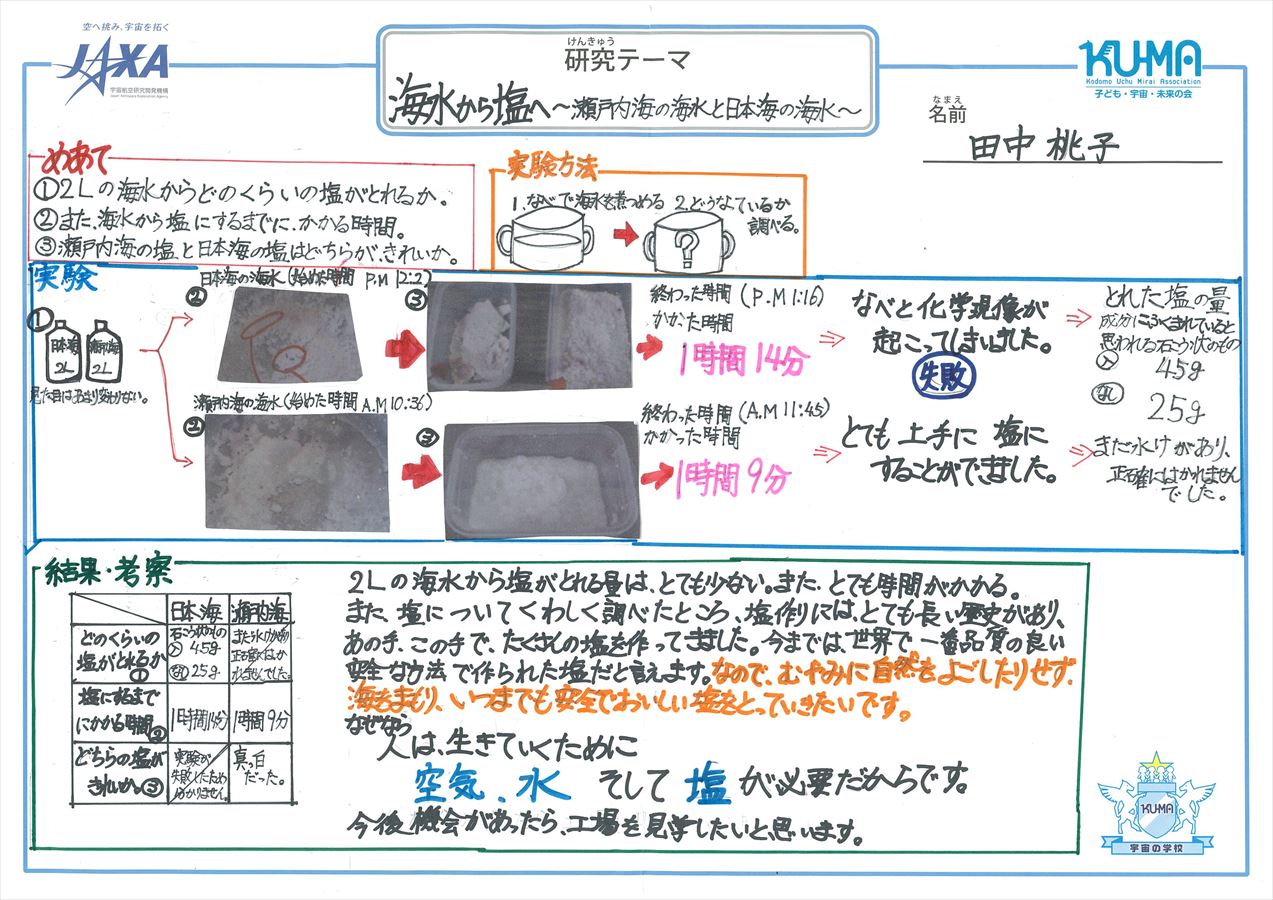 空へ挑み、宇宙を拓く
JAXA
宇宙航空研究開発機構
Japan Aerospace Exploration Agency
けんきゅう
研究テーマ
海水から塩へ～瀬戸内海の海水と日本海の海水～
KU-MA
Kodomo Uchu Mirai Association
子ども・宇宙・未来の会
なまえ
名前
田中 桃子
めあて
①2Lの海水からどのくらいの塩がとれるか。
②また、海水から塩にするまでに、かかる時間。
③瀬戸内海の塩、と日本海の塩はどちらが、きれいか。
実験方法
1.なべで海水を煮つめる 2.どうなっているか
調べる。
?
実験
①
日本海
2L
瀬戸内海
2L
見た目はあまり変わりない。
② 日本海の海水(始めた時間 P.M 12:2)
③
終わった時間 (P.M 1:16)
かかった時間
1時間14分
なべと化学現像が
起こってしまいました。
失敗
とれた塩の量
成分にふくまれていると
思われる石こう状のもの
入
45g
なし
25g
瀬戸内海の海水(始めた時間 A.M 10:36)
②
③
終わった時間 (A.M 11:45)
かかった時間
1時間9分
とても上手に塩に
することができました。
まだ水けがあり、
正確にはかれません
でした。
結果・考察
日本海 瀬戸内海
どのくらいの
塩がとれるか
①
石こう状のもの
入 45g
なし 25g
まだ水けがあり
正確にはか
れませんでした。
塩になるまで
にかかる時間②
1時間14分
1時間9分
どちらの塩が
きれいか。③
実験が
失敗したため
分かりません。
真っ白
だった。
2Lの海水から塩がとれる量は、とても少ない。また、とても時間がかかる。
また、塩についてくわしく調べたところ、塩作りには、とても長い歴史があり、
あの手、この手で、たくさんの塩を作ってきました。今までは、世界で一番品質の良い
安全な方法で作られた塩だと言えます。なので、むやみに自然をよごしたりせず、
海をまもり、いつまでも安全でおいしい塩をとっていきたいです。
なぜなら
人は、生きていくために
空気、水 そして 塩 が必要だからです。
今後、機会があったら、工場を見学したいと、思います。
KU-MA
宇宙の学校